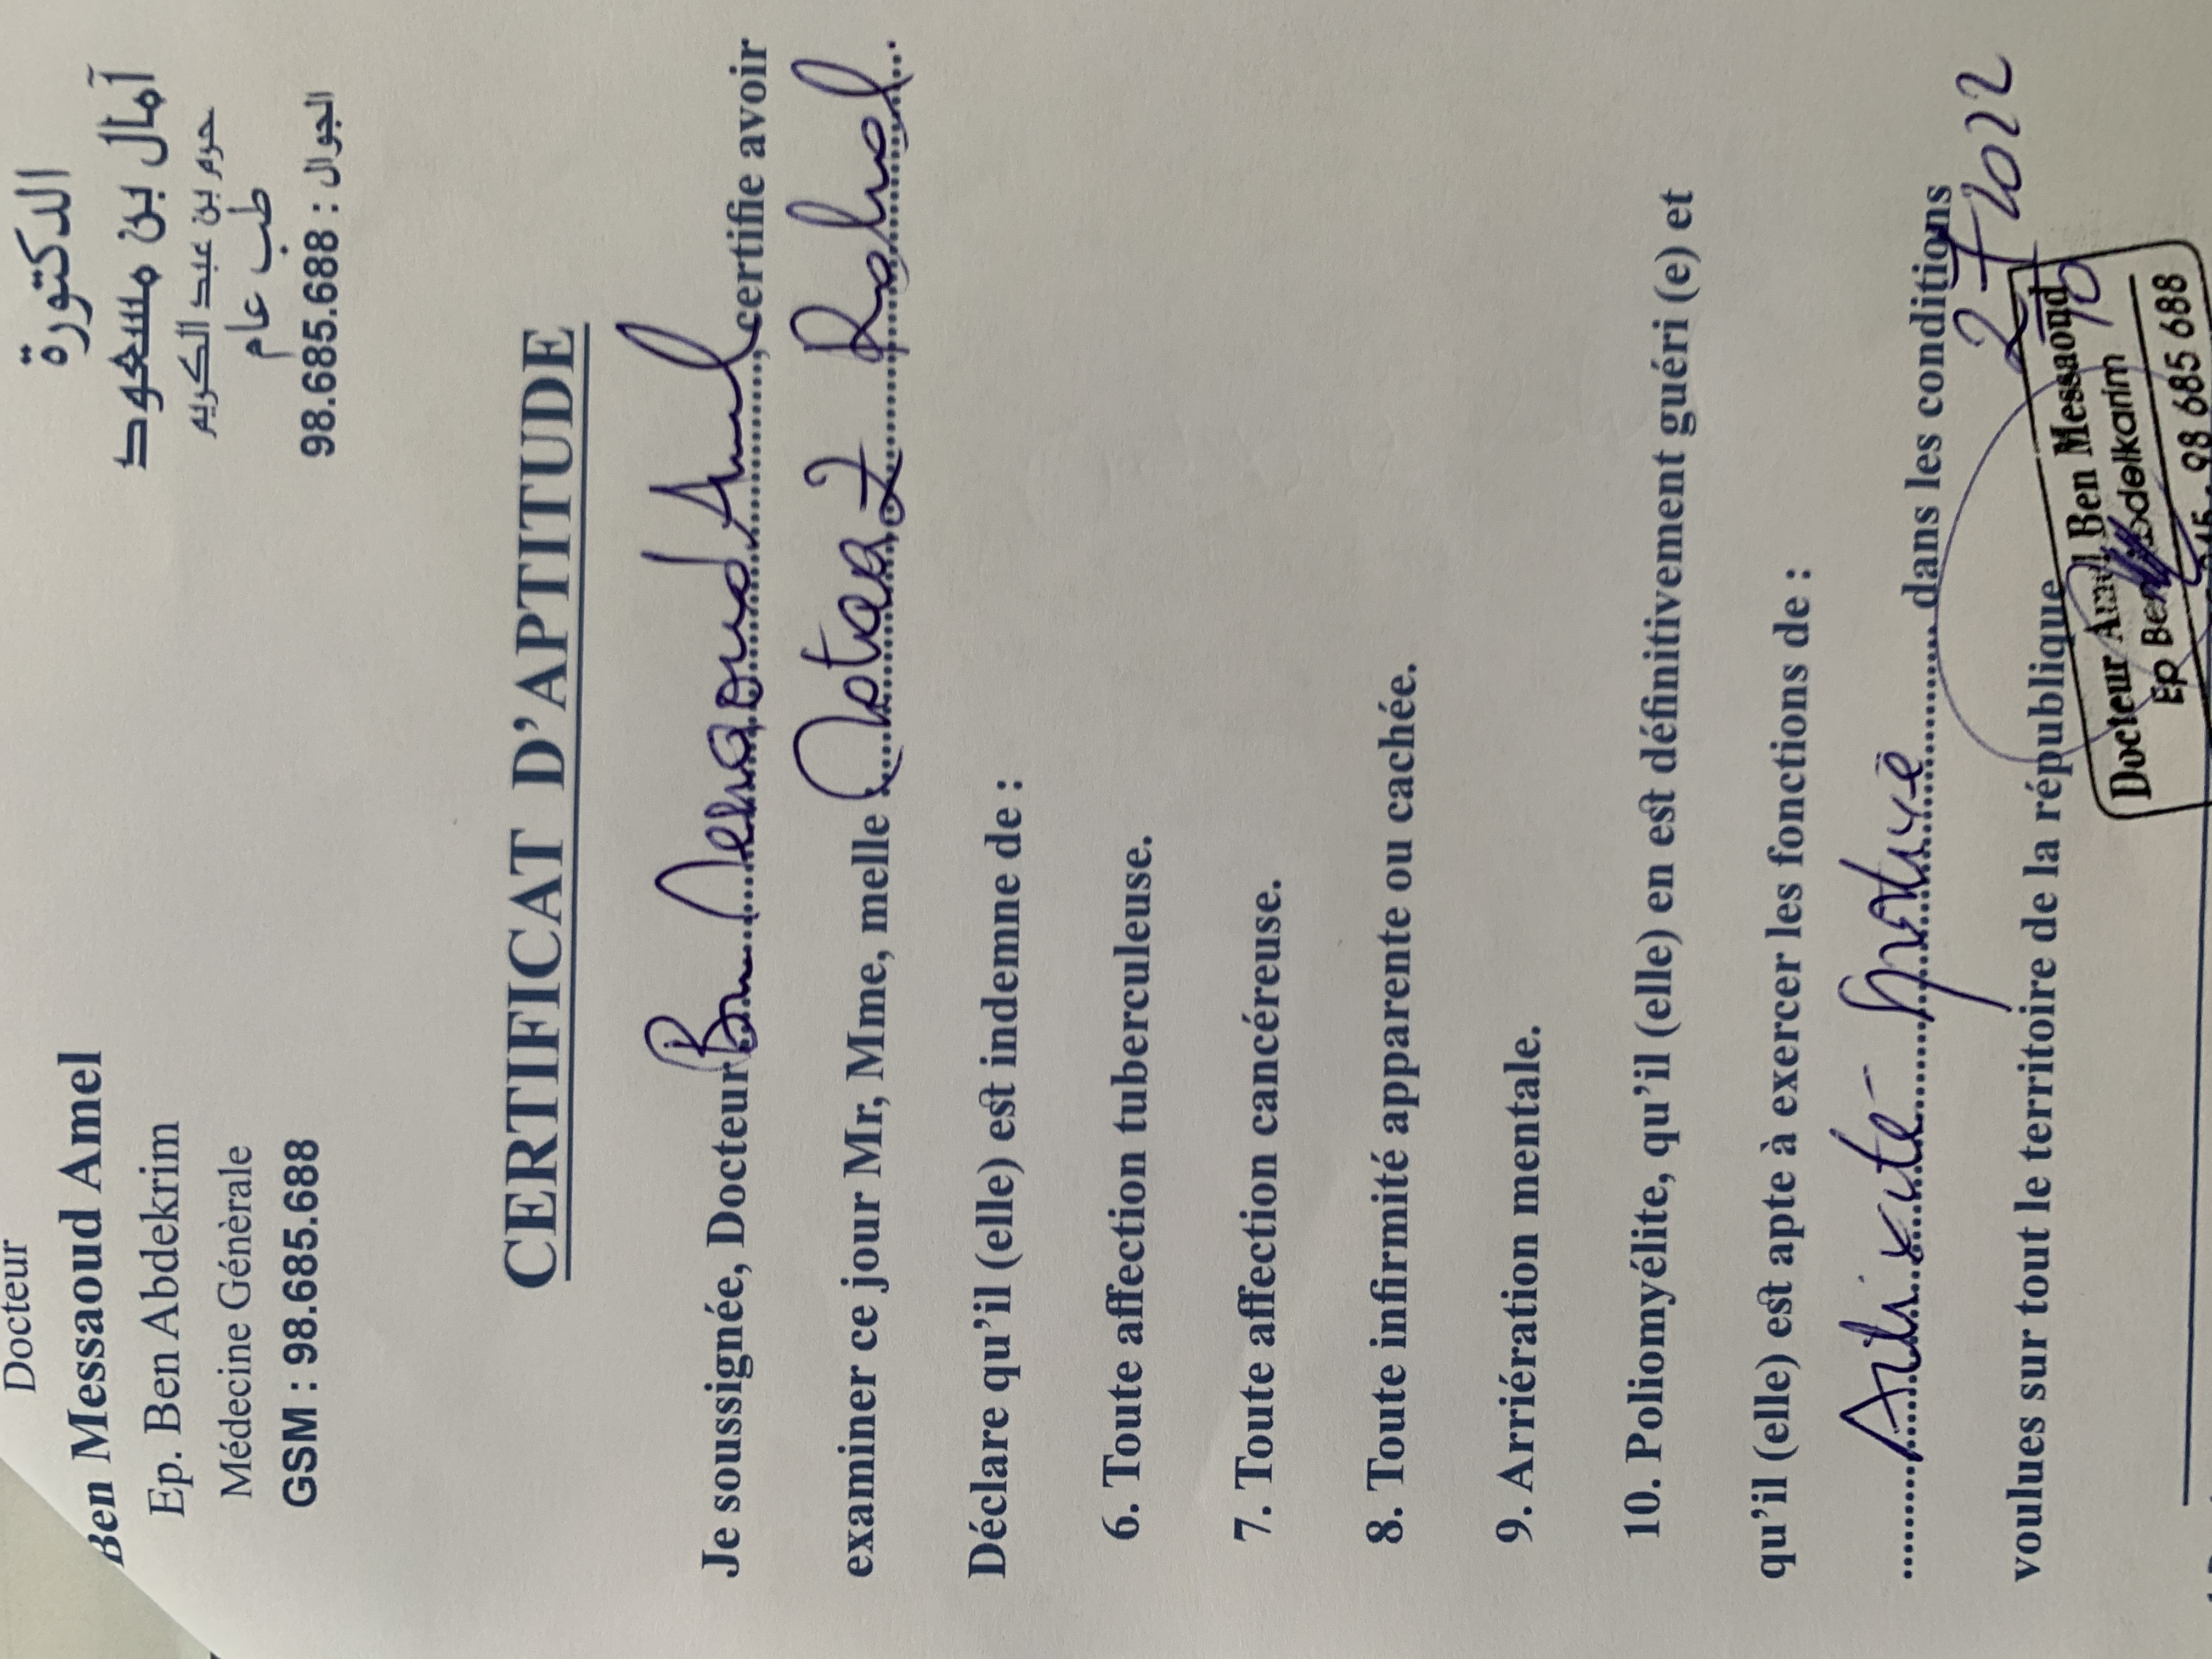 Docteur
Ben Messaoud Amel
Ep. Ben Abdekrim
Médecine Génèrale
GSM : 98.685.688
الدكتورة
آمال بن مسعود
حرم بن عبد الكريم
طب عام
الجوال : 98.685.688
CERTIFICAT D'APTITUDE
Je soussignée, Docteur Ben Messaoud Amel, certifie avoir
examiner ce jour Mr, Mme, melle Motaaz Rahal
Déclare qu'il (elle) est indemne de :
6. Toute affection tuberculeuse.
7. Toute affection cancéreuse.
8. Toute infirmité apparente ou cachée.
9. Arriération mentale.
10. Poliomyélite, qu'il (elle) en est définitivement guéri (e) et
qu'il (elle) est apte à exercer les fonctions de :
Activité sportive dans les conditions
voulues sur tout le territoire de la république
2022
Docteur Amel Ben Messaoud
Ep Ben Abdelkarim
98 685 688